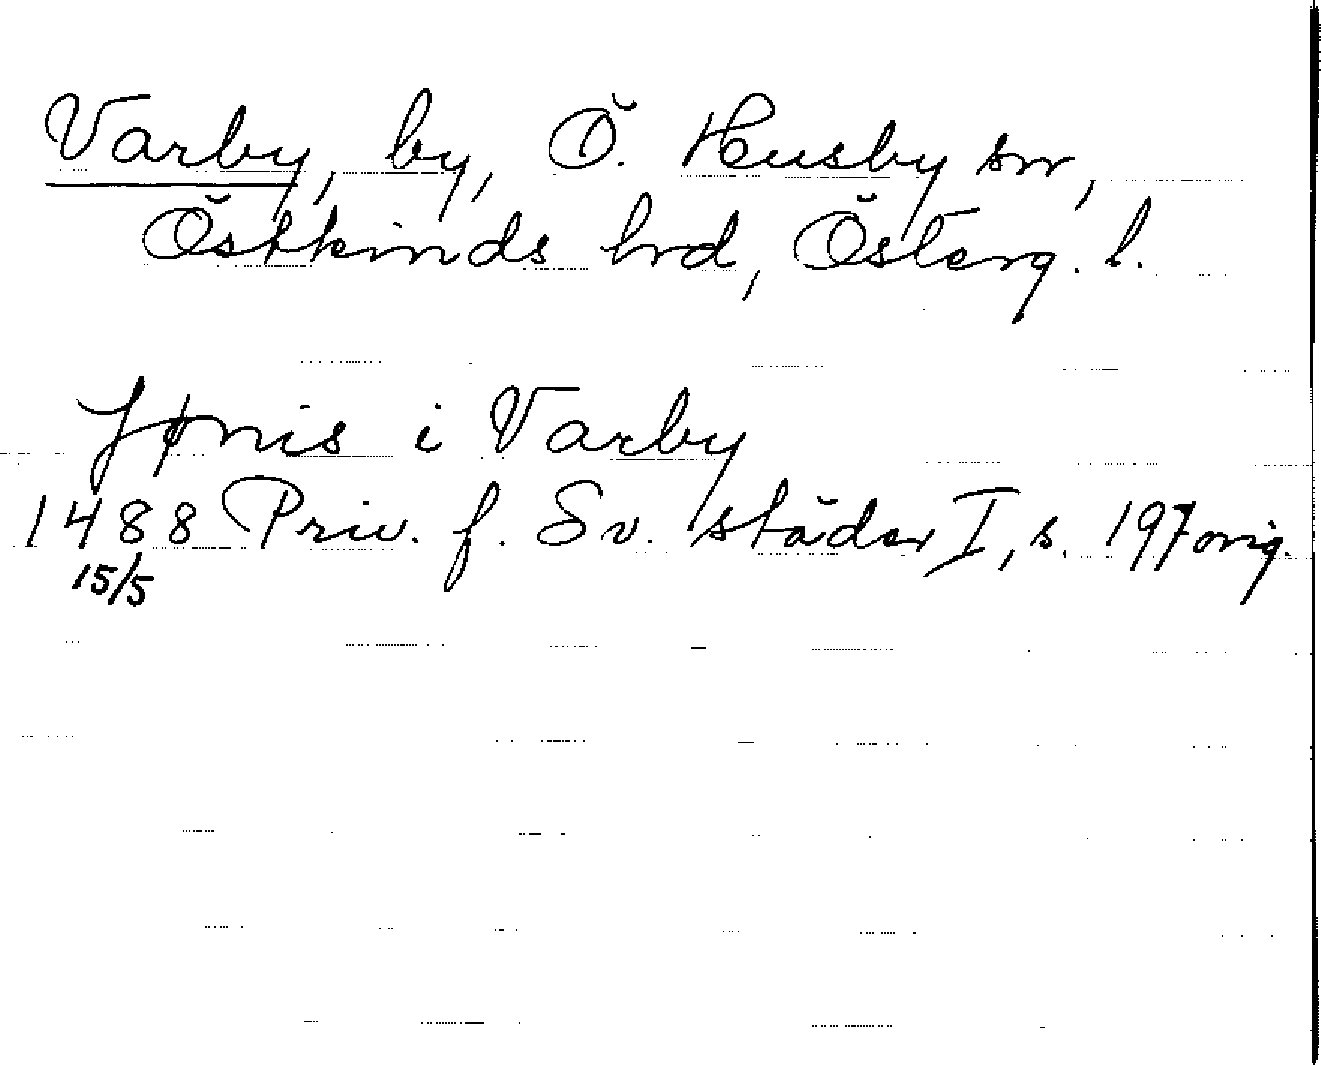 Varby, by, Ö. Husby sn,
Östkinds hrd, Österg. l.
Jønis i Varby
1488 Priv. f. Sv. städer I, s. 197 orig.
15/5